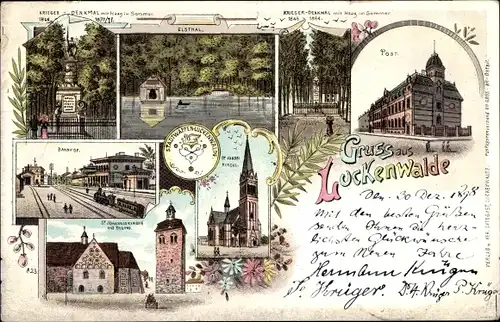 KRIEGER - DENKMAL mit Haag im Sommer.
1866. 1870/71.
ELSTHAL.
KRIEGER-DENKMAL mit Haag im Sommer.
1866 1864.
POST.
BAHNHOF.
STADTWAPPEN LUCKENWALDE
ST. JACOBI KIRCHE.
ST. JOHANNISKIRCHE
Gruss aus
Luckenwalde
Den 30 Dez. 1898
Mit den besten Grüßen
senden Ihnen die herz-
lichsten Glückwünsche
zum Neuen Jahre
Hermann Krüger
Krüger. Krüger P. Krüger